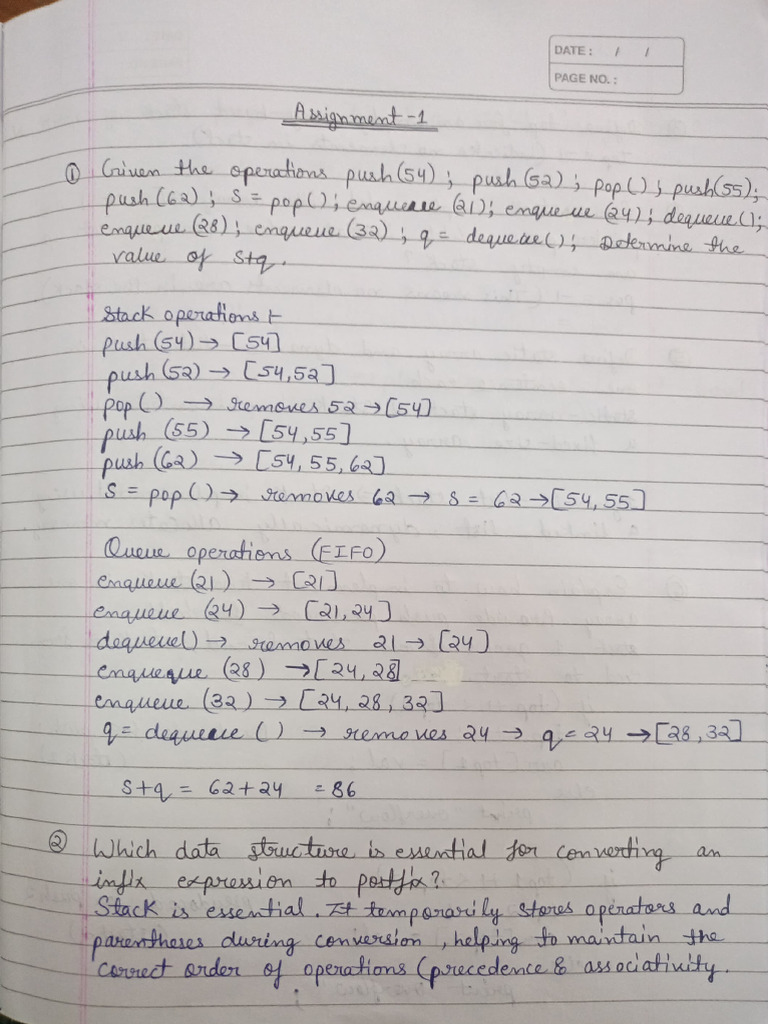 DATE: / /
PAGE NO.:
Assignment-1
① Given the operations push(54); push(52); pop(); push(55);
push(62); S = pop(); enqueue (21); enqueue (24); dequeue();
enqueue (28); enqueue (32); q = dequeue(); Determine the
value of S+q.
Stack operations :-
push (54) → [54]
push (52) → [54,52]
pop() → removes 52 → [54]
push (55) → [54,55]
push (62) → [54, 55, 62]
S = pop() → removes 62 → S = 62 → [54, 55]
Queue operations (FIFO)
enqueue (21) → [21]
enqueue (24) → [21,24]
dequeue() → removes 21 → [24]
enqueque (28) → [24, 28]
enqueue (32) → [24, 28, 32]
q = dequeue () → removes 24 → q = 24 → [28, 32]
S+q = 62+24 = 86
② Which data structure is essential for converting an
infix expression to postfix?
Stack is essential. It temporarily stores operators and
parentheses during conversion, helping to maintain the
correct order of operations (precedence & associativity.